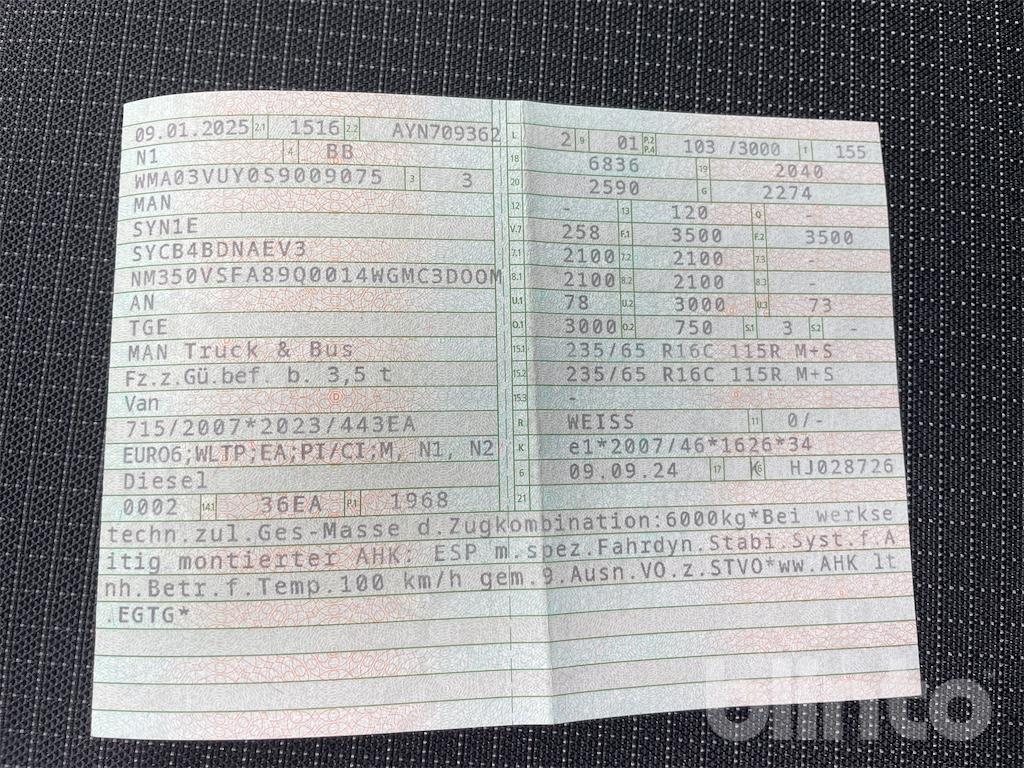 09.01.2025 2.1 1516 2.2 AYN709362
N1 4 BB
WMA03VUY0S9009075 3 3
MAN
SYN1E
SYCB4BDNAEV3
NM350VSFA89Q0014WGMC3DOOM
AN
TGE
MAN Truck & Bus
Fz.z.Gü.bef. b. 3,5 t
Van
715/2007*2023/443EA
EURO6;WLTP;EA;PI/CI;M, N1, N2
Diesel
0002 14.1 36EA P.1 1968
L 2 9 01 P.2 P.4 103 /3000 T 155
18 6836 19 2040
20 2590 G 2274
12 - 13 120 Q -
V.7 258 F.1 3500 F.2 3500
7.1 2100 7.2 2100 7.3 -
8.1 2100 8.2 2100 8.3 -
U.1 78 U.2 3000 U.3 73
O.1 3000 O.2 750 S.1 3 S.2 -
15.1 235/65 R16C 115R M+S
15.2 235/65 R16C 115R M+S
15.3 -
R WEISS 11 0/-
K e1*2007/46*1626*34
6 09.09.24 17 K 16 HJ028726
21
techn.zul.Ges-Masse d.Zugkombination:6000kg*Bei werkse
itig montierter AHK: ESP m.spez.Fahrdyn.Stabi Syst.f A
nh.Betr.f.Temp.100 km/h gem.9.Ausn.VO.z.STVO*ww.AHK lt
.EGTG*
blinto